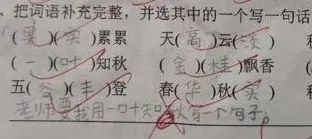 、把词语补充完整，并选其中的一个写一句话
(果)(实)累累 天(高)云(淡)
(一)(叶)知秋 (金)(桂)飘香
五(谷)(丰)登 春(华)秋(实)
老师要我用一叶知秋写一个句子。